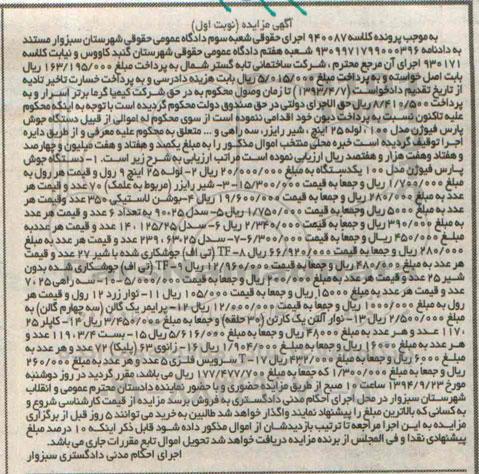 آگهی مزایده (نوبت اول)
به موجب پرونده کلاسه ۹۴۰۰۸۷ اجرای حقوقی شعبه سوم دادگاه عمومی حقوقی شهرستان سبزوار مستند
به دادنامه ۹۳۰۹۹۷۱۷۹۹۰۰۰۳۹۶ شعبه هفتم دادگاه عمومی حقوقی شهرستان گنبد کاووس و نیابت کلاسه
۹۳۰۱۷۱ اجرای آن مرجع محترم ، شرکت ساختمانی تابه گستر شمال به پرداخت مبلغ ۱۶۳/۱۹۵/۰۰۰ ریال
بابت اصل خواسته و به پرداخت مبلغ ۵/۰۱۵/۰۰۰ ریال بابت هزینه دادرسی و به پرداخت خسارت تاخیر تادیه
از تاریخ تقدیم دادخواست (۱۳۹۳/۴/۷) تا زمان وصول محکوم به در حق شرکت کیمیا گرما برتر اسرار و به
پرداخت ۸/۴۱۰/۵۰۰ ریال حق الاجرای دولتی در حق صندوق دولت محکوم گردیده است با توجه به اینکه محکوم
علیه تاکنون نسبت به پرداخت دیون خود اقدامی ننموده است از سوی محکوم له اموالی از قبیل دستگاه جوش
پارس فیوژن مدل ۱۰۰ ، لوله ۲۵ اینچ ، شیر رایزر، سه راهی و ... متعلق به محکوم علیه معرفی و از طریق دایره
اجرا توقیف گردیده است خبره محلی منتخب اموال مذکور را به مبلغ یکصد و هفتاد و هفت میلیون و چهارصد
و هفتاد وهفت هزار و هفتصد ریال ارزیابی نموده است مراتب ارزیابی به شرح زیر است. ۱- دستگاه جوش
پارس فیوژن مدل ۱۰۰ یکدستگاه به مبلغ ۲۰/۰۰۰/۰۰۰ ریال ۲- لوله ۲۵ اینچ ۹ رول و قیمت هر رول به
مبلغ ۱/۷۰۰/۰۰۰ ریال و جمعا به قیمت ۱۵/۳۰۰/۰۰۰ ۳- شیر رایزر (مربوط به علمک) ۷۰ عدد و قیمت هر
عدد به مبلغ ۲۸۰/۰۰۰ ریال و جمعا به قیمت ۱۹/۶۰۰/۰۰۰ ریال ۴-بوشن لاستیکی ۳۵۰ عدد وقیمت هر
عدد به مبلغ ۵۰۰۰ ریال وجمعا به قیمت ۱/۷۵۰/۰۰۰ ریال ۵- سدل ۹۰.۲۵ به تعداد ۶ عدد و هر عدد
به مبلغ ۳۹۰/۰۰۰ ریال و جمعا به قیمت ۲/۳۴۰/۰۰۰ ریال ۶- سدل ۱۲۵.۲۵، ۱۴ عدد و قیمت هر عددبه
مبلغ ۴۵۰/۰۰۰ ریال و جمعا به قیمت ۶/۳۰۰/۰۰۰ ۷- سدل ۶۳.۲۵، ۲۳۹ عدد و قیمت هر عدد به مبلغ
۲۸۰/۰۰۰ ریال و جمعا به قیمت ۶۶/۹۲۰/۰۰۰ ریال ۸-TF (تی اف) جوشکاری شده با شیر ۲۷ عدد و قیمت
هر عدد به مبلغ ۴۸۰/۰۰۰ ریال و جمعا به قیمت ۱۲/۹۶۰/۰۰۰ ریال ۹-TF (تی اف) جوشکاری شده بدون
شیر ۲۵ عدد و قیمت هر عدد به مبلغ ۲۰۰/۰۰۰ ریال و جمعا به قیمت ۵/۰۰۰/۰۰۰ ۱۰-سه راهی ۲۵، ۷
عدد و قیمت هر عدد به مبلغ ۱۵۰۰۰ ریال و جمعا به قیمت ۱۰۵/۰۰۰ ریال ۱۱- نوار زرد ۱۲ رول و قیمت هر
رول به مبلغ ۱/۰۰۰/۰۰۰ ریال و جمعا به قیمت ۱۲/۰۰۰/۰۰۰ ریال ۱۲-پرایمر یک گالن (سه چهارم گالن) به
مبلغ ۲/۵۰۰/۰۰۰ ریال ۱۳- نوار آلتن یک کارتن (۳۰ حلقه) و جمعا به مبلغ ۳/۴۵۰/۰۰۰ ریال ۱۴- کاپلر ۲۵
۱۱۷ عدد و هر عدد به مبلغ ۴۸۰۰۰ ریال و جمعا به مبلغ ۵/۶۱۶/۰۰۰ ریال ۱۵- بست ۱۱۹۰.۳/۴ عدد و
هر عدد به مبلغ ۱۶۰۰ ریال و جمعا به مبلغ ۱/۹۰۴/۰۰۰ ریال ۱۶- زانوی ۶۳ (پلیکا) ۷۲ عدد و هر عدد به
مبلغ ۶۰۰۰ ریال و جمعا به مبلغ ۴۳۲/۰۰۰ ریال ۱۷- T سرویس فلزی ۵ عدد و هر عدد به مبلغ ۲۶۰/۰۰۰
و جمعا به مبلغ ۱/۳۰۰/۰۰۰ که جمعا به مبلغ ۱۷۷/۴۷۷/۷۰۰ ریال می باشد، مقرر گردید در روز دوشنبه
مورخ ۱۳۹۴/۹/۲۳ ساعت ۱۰ صبح از طریق مزایده حضوری و با حضور نماینده دادستان محترم عمومی و انقلاب
شهرستان سبزوار در محل اجرای احکام مدنی دادگستری به فروش برسد مزایده از قیمت کارشناسی شروع و
به کسانی که بالاترین مبلغ را پیشنهاد نمایند واگذار خواهد شد طالبین به خرید می توانند ۵ روز قبل از برگزاری
مزایده به این اجرا مراجعه تا ترتیب بازدیدشان از اموال مذکور داده شود قابل ذکر اینکه ۱۰ درصد مبلغ
پیشنهادی نقدا و فی المجلس از برنده مزایده دریافت خواهد شد تحویل اموال تابع مقررات جاری می باشد.
اجرای احکام مدنی دادگستری سبزوار